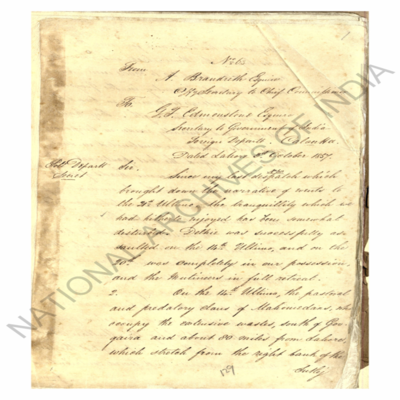 No 63
From
A. Brandreth Esquire
Offg Secretary to Chief Commissioner
To,
G. F. Edmonstone Esquire
Secretary to Government of India
Foreign Departt. Calcutta.
Dated Lahore October 1857.
Departt Sir,
Since my last despatch which
brought down the narrative of events to
the Ultimo, the tranquillity which we
had hitherto enjoyed has been somewhat
destroyed. Delhie was successfully as
saulted on the 14th Ultimo, and on the
was completely in our possession,
and the Mutineers in full retreat.
2. On the 14th Ultimo, the pastoral
and predatory clans of Mahomedans, who
occupy the extensive wastes, south of Goo
gaira and about 80 miles from Lahore,
which stretch from the right bank of the
Sutlej
NATIONAL ARCHIVES OF INDIA